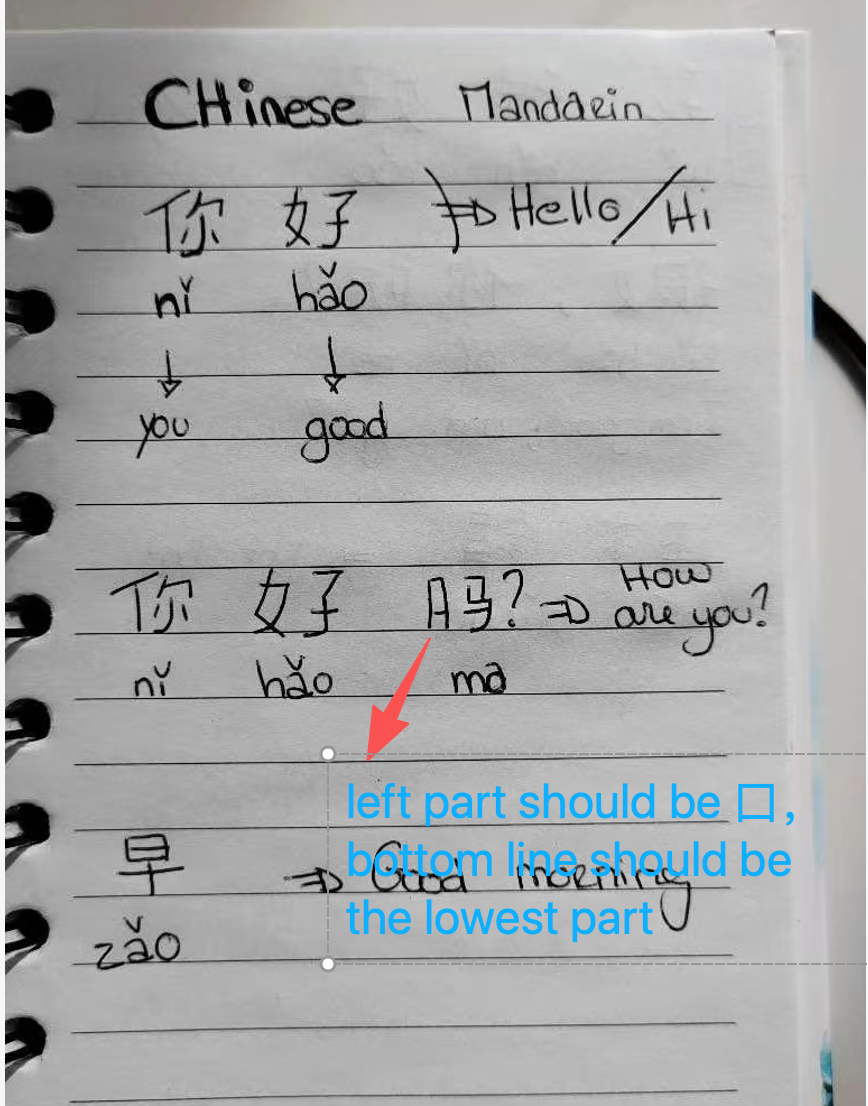 CHinese Mandarin
你 好 => Hello/Hi
nǐ hǎo
↓ ↓
you good
你 好 吗? => How are you?
nǐ hǎo ma
left part should be 口,
bottom line should be
the lowest part
早 => Good morning
zǎo